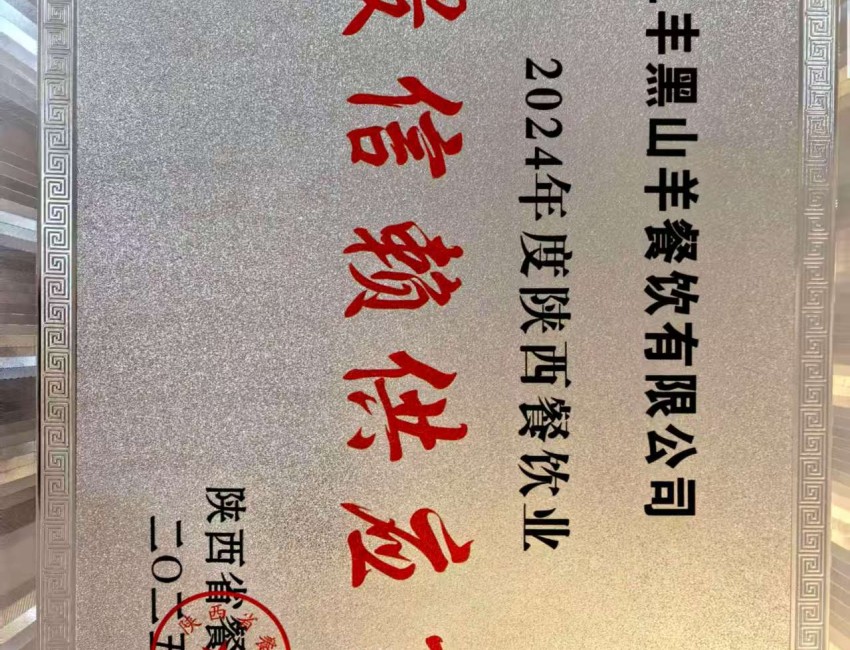 丰黑山羊餐饮有限公司
2024年度陕西餐饮业
信赖供应
陕西省餐
二〇二五
陕西省餐